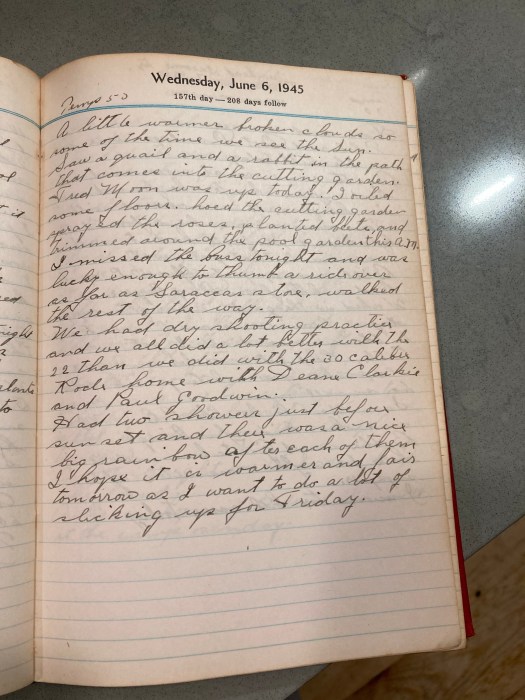 Wednesday, June 6, 1945
157th day — 208 days follow
A little warmer broken clouds so
some of the time we see the sun.
Saw a quail and a rabbit in the path
that comes into the cutting garden.
Fred Moon was up today. I oiled
some floors, hoed the cutting garden
sprayed the roses, planted beets, and
trimmed around the pool garden this A.M.
I missed the buss tonight and was
lucky enough to thumb a ride over
as far as Saraccas store, walked
the rest of the way.
We had dry shooting practice
and we all did a lot better with the
22 than we did with the 30 caliber
Rode home with Deane Clark
and Paul Goodwin.
Had two showers just before
sun set and there was a nice
big rainbow after each of them
I hope it is warmer and fair
tomorrow as I want to do a lot of
slicking up for Friday.